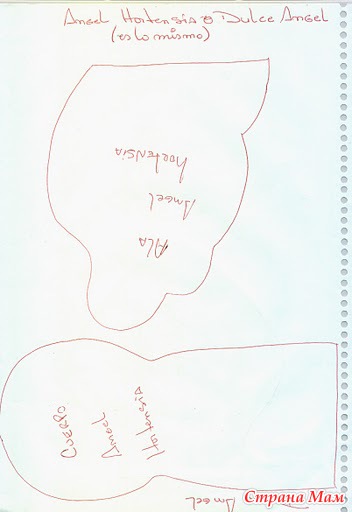 Angel Hortensia o Dulce Angel
(es lo mismo)
Ala
Angel
hortensia
Cuerpo
Angel
Hortensia
Angel
Страна Мам